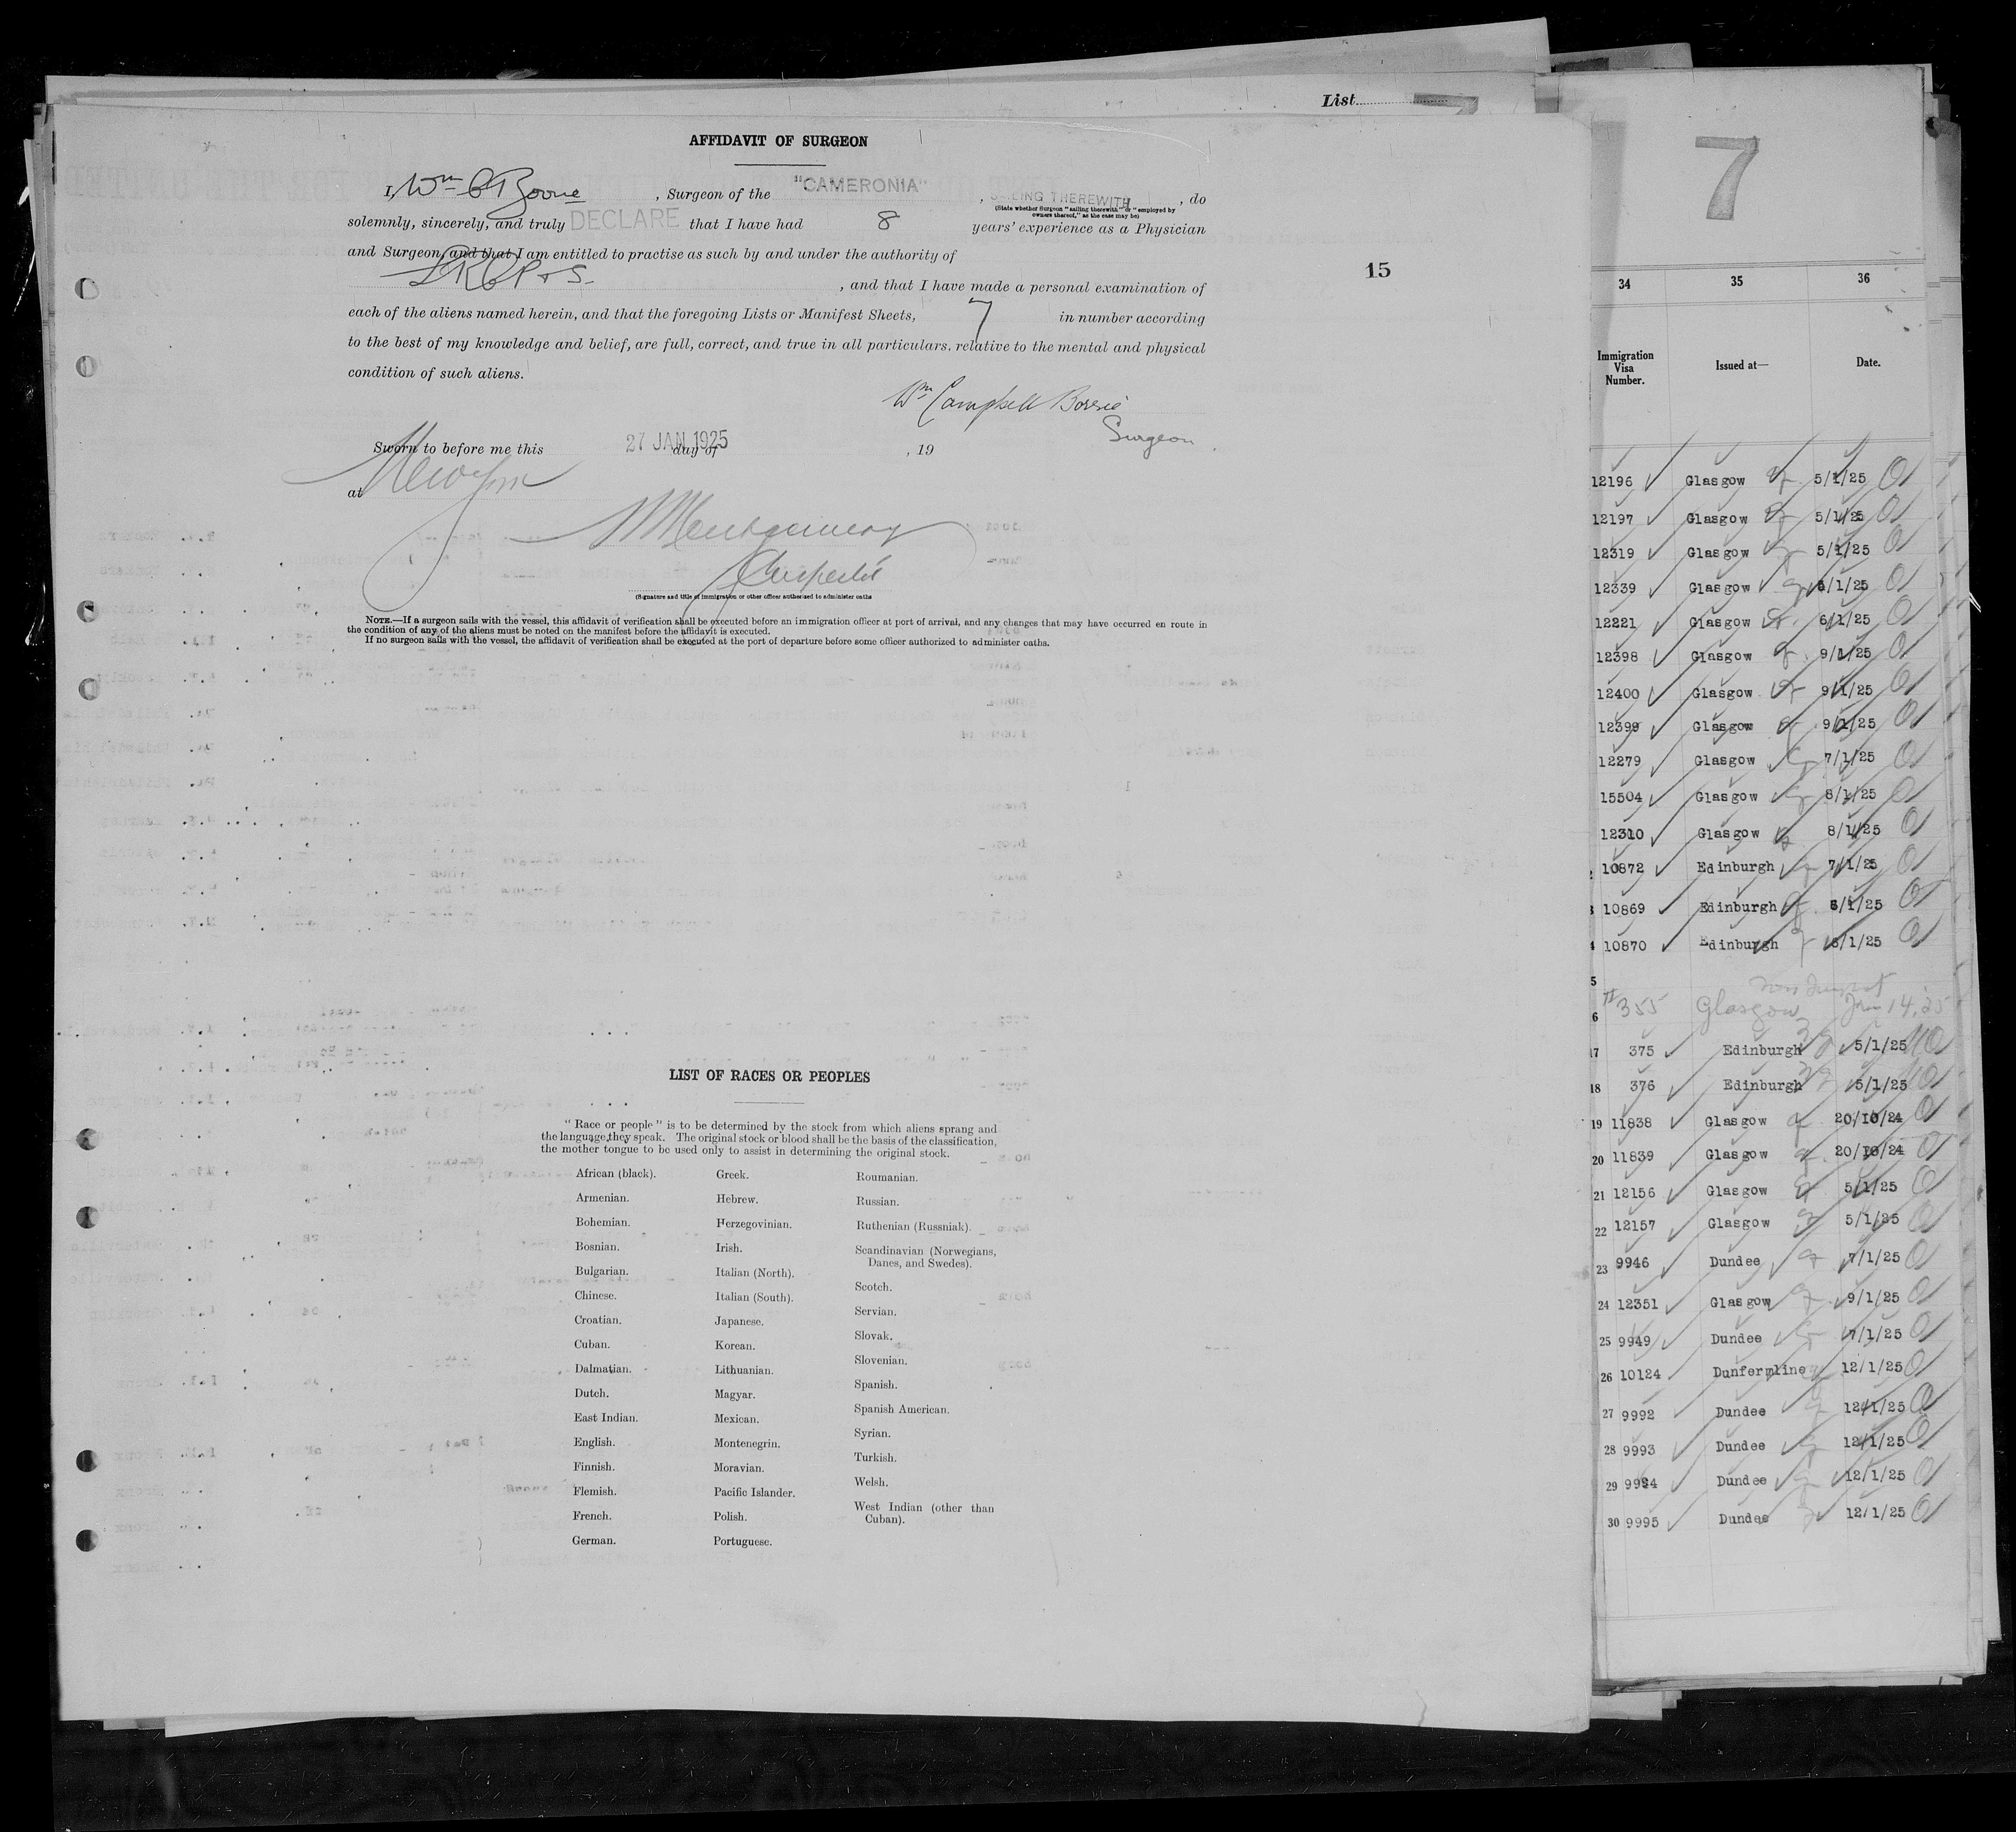 List
AFFIDAVIT OF SURGEON
I, Wm C Borrie, Surgeon of the "CAMERONIA", SAILING THEREWITH, do
(State whether Surgeon "sailing therewith" or "employed by
owners thereof," as the case may be)
solemnly, sincerely, and truly DECLARE that I have had 8 years' experience as a Physician
and Surgeon, and that I am entitled to practise as such by and under the authority of
LRCP & S., and that I have made a personal examination of
each of the aliens named herein, and that the foregoing Lists or Manifest Sheets, 7 in number according
to the best of my knowledge and belief, are full, correct, and true in all particulars, relative to the mental and physical
condition of such aliens.
Wm Campbell Borrie
Surgeon.
Sworn to before me this 27 JAN 1925 day of , 19
at New York
Montgomery
Inspector
(Signature and title of immigration or other officer authorized to administer oaths
NOTE.—If a surgeon sails with the vessel, this affidavit of verification shall be executed before an immigration officer at port of arrival, and any changes that may have occurred en route in
the condition of any of the aliens must be noted on the manifest before the affidavit is executed.
If no surgeon sails with the vessel, the affidavit of verification shall be executed at the port of departure before some officer authorized to administer oaths.
15
LIST OF RACES OR PEOPLES
"Race or people" is to be determined by the stock from which aliens sprang and
the language they speak. The original stock or blood shall be the basis of the classification,
the mother tongue to be used only to assist in determining the original stock.
African (black).
Armenian.
Bohemian.
Bosnian.
Bulgarian.
Chinese.
Croatian.
Cuban.
Dalmatian.
Dutch.
East Indian.
English.
Finnish.
Flemish.
French.
German.
Greek.
Hebrew.
Herzegovinian.
Irish.
Italian (North).
Italian (South).
Japanese.
Korean.
Lithuanian.
Magyar.
Mexican.
Montenegrin.
Moravian.
Pacific Islander.
Polish.
Portuguese.
Roumanian.
Russian.
Ruthenian (Russniak).
Scandinavian (Norwegians,
Danes, and Swedes).
Scotch.
Servian.
Slovak.
Slovenian.
Spanish.
Spanish American.
Syrian.
Turkish.
Welsh.
West Indian (other than
Cuban).
7
34 35 36
Immigration
Visa
Number. Issued at— Date.
12196 Glasgow 5/1/25
12197 Glasgow 5/1/25
12319 Glasgow 5/1/25
12339 Glasgow 8/1/25
12221 Glasgow 6/1/25
12398 Glasgow 9/1/25
12400 Glasgow 9/1/25
12399 Glasgow 9/1/25
12279 Glasgow 7/1/25
15504 Glasgow 8/1/25
12310 Glasgow 8/1/25
10872 Edinburgh 7/1/25
10869 Edinburgh 6/1/25
10870 Edinburgh 6/1/25
5
6 355 Glasgow Jan 14, 25
17 375 Edinburgh 5/1/25
18 376 Edinburgh 5/1/25
19 11838 Glasgow 20/10/24
20 11839 Glasgow 20/10/24
21 12156 Glasgow 5/1/25
22 12157 Glasgow 5/1/25
23 9946 Dundee 7/1/25
24 12351 Glasgow 9/1/25
25 9949 Dundee 7/1/25
26 10124 Dunfermline 12/1/25
27 9992 Dundee 12/1/25
28 9993 Dundee 12/1/25
29 9994 Dundee 12/1/25
30 9995 Dundee 12/1/25